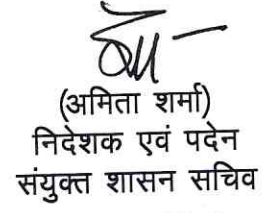 (अमिता शर्मा)
निदेशक एवं पदेन
संयुक्त शासन सचिव